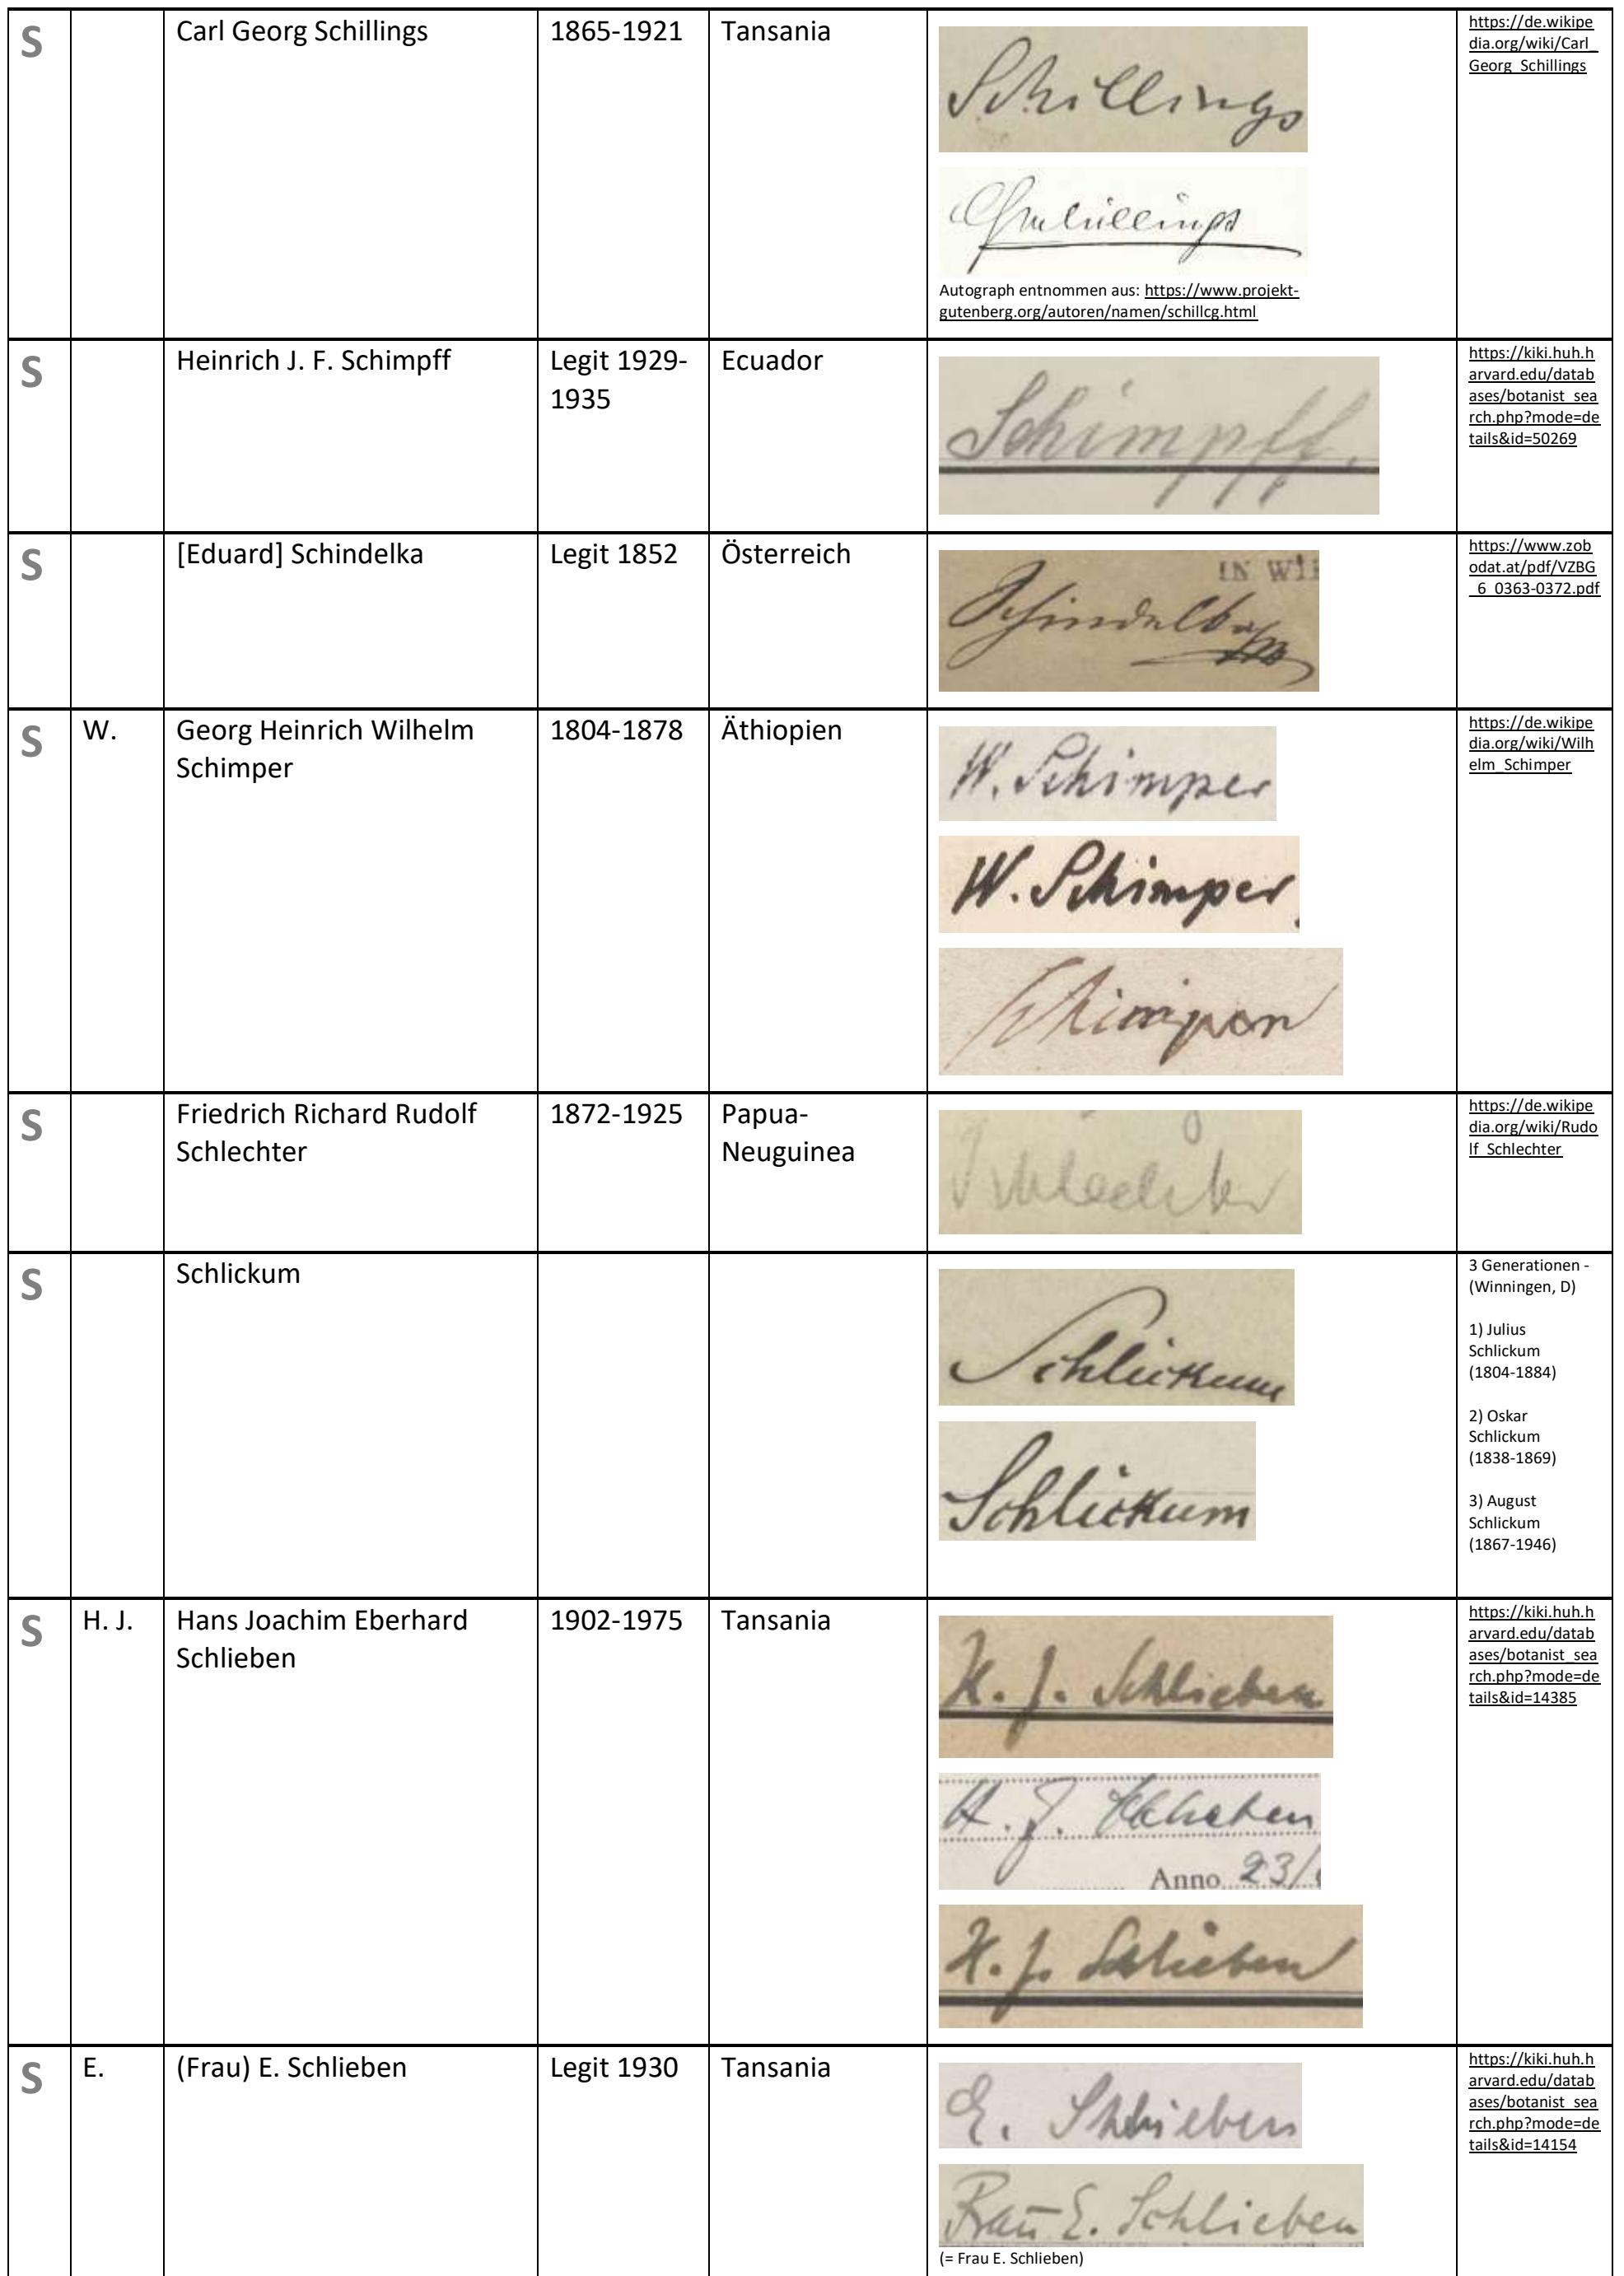 S
Carl Georg Schillings
1865-1921
Tansania
Schillings
Schillings
Autograph entnommen aus: https://www.projekt-
gutenberg.org/autoren/namen/schillcg.html
https://de.wikipe
dia.org/wiki/Carl_
Georg_Schillings
S
Heinrich J. F. Schimpff
Legit 1929-
1935
Ecuador
Schimpff.
https://kiki.huh.h
arvard.edu/datab
ases/botanist_sea
rch.php?mode=de
tails&id=50269
S
[Eduard] Schindelka
Legit 1852
Österreich
IN WI
Schindelka
https://www.zob
odat.at/pdf/VZBG
_6_0363-0372.pdf
S
W.
Georg Heinrich Wilhelm
Schimper
1804-1878
Äthiopien
W. Schimper
W. Schimper
Schimper
https://de.wikipe
dia.org/wiki/Wilh
elm_Schimper
S
Friedrich Richard Rudolf
Schlechter
1872-1925
Papua-
Neuguinea
Schlechter
https://de.wikipe
dia.org/wiki/Rudo
lf_Schlechter
S
Schlickum
Schlickum
Schlickum
3 Generationen -
(Winningen, D)
1) Julius
Schlickum
(1804-1884)
2) Oskar
Schlickum
(1838-1869)
3) August
Schlickum
(1867-1946)
S
H. J.
Hans Joachim Eberhard
Schlieben
1902-1975
Tansania
H. J. Schlieben
H. J. Schlieben
Anno 23/
H. J. Schlieben
https://kiki.huh.h
arvard.edu/datab
ases/botanist_sea
rch.php?mode=de
tails&id=14385
S
E.
(Frau) E. Schlieben
Legit 1930
Tansania
E. Schlieben
Frau E. Schlieben
(= Frau E. Schlieben)
https://kiki.huh.h
arvard.edu/datab
ases/botanist_sea
rch.php?mode=de
tails&id=14154